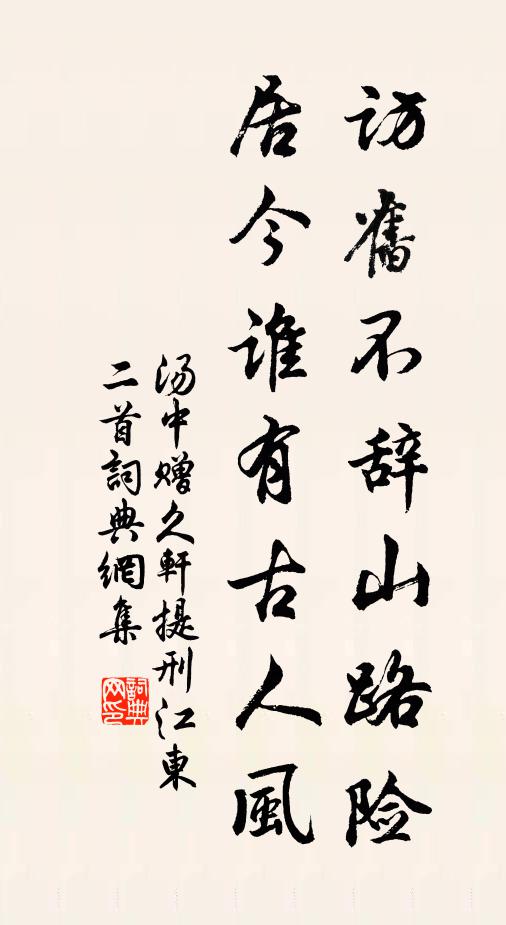 访舊不辞山路险
居今谁有古人風
汤中赠久軒提刑江東
二首詞典網集
詞典网印